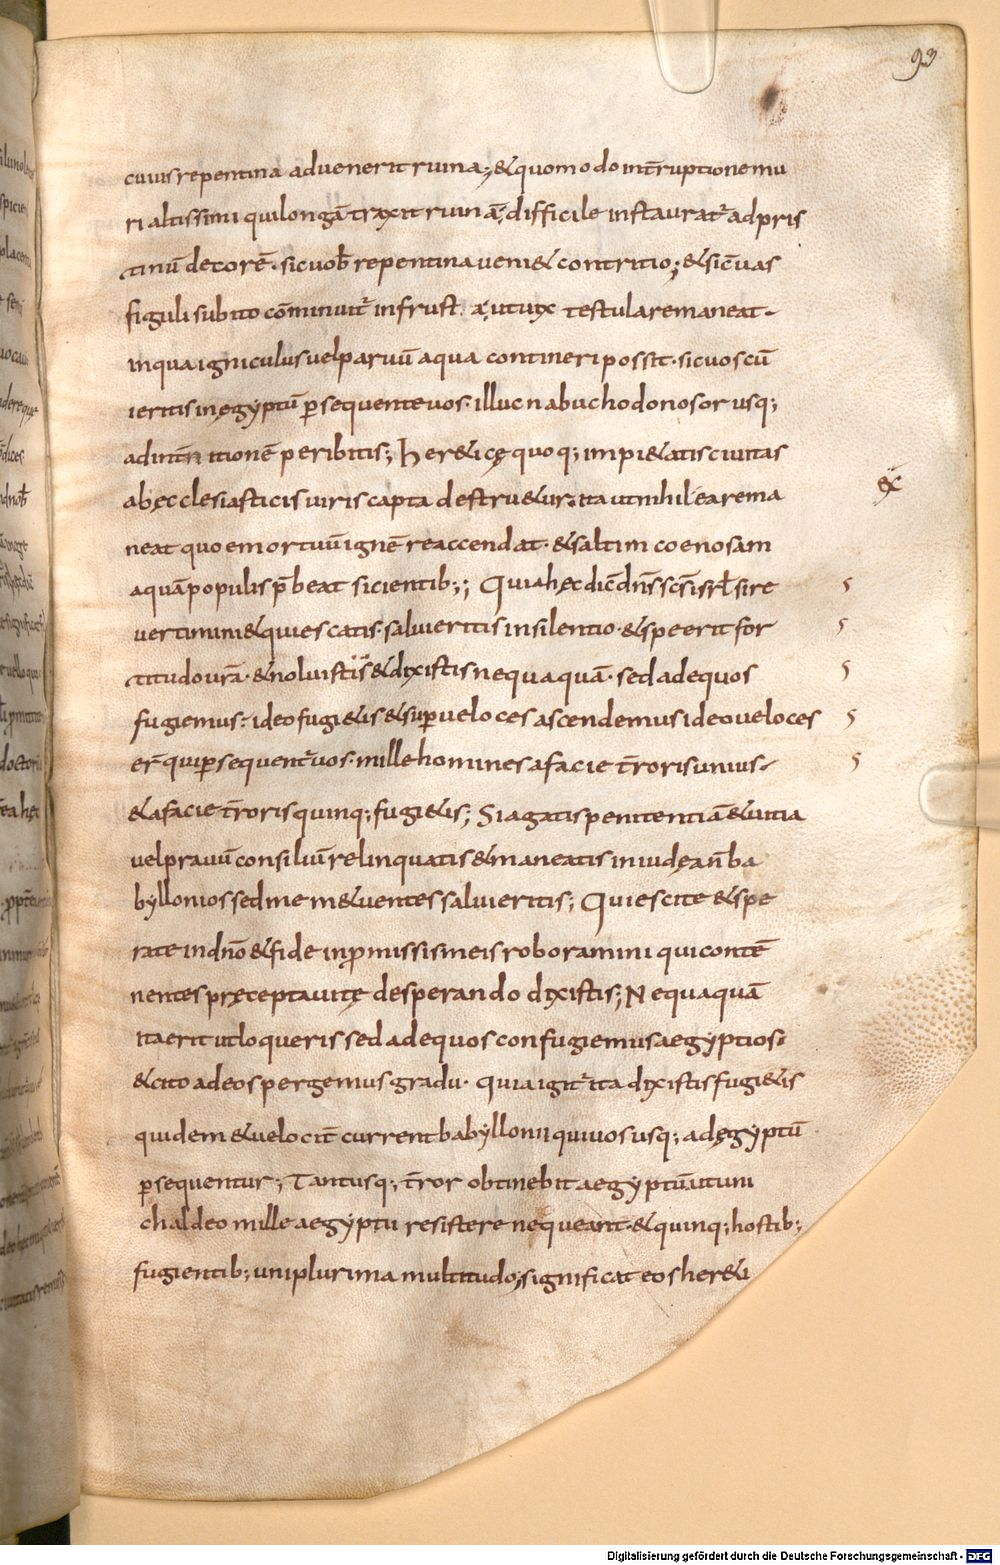 93
cuius repentina aduenerit ruina; & quomodo interruptione mu
ri altissimi qui longā traxit ruinā; difficile instaurat̄ ad pris
tinū decorē. sic uob̄ repentina ueni& contritio; & sic̄ uas
figuli subito cōminuit̄ in frust a; ut uix testula remaneat.
in qua igniculus uel paruū aqua contineri possit. sic uos cū
ieritis in ęgyptū p̄sequente uos illuc nabuchodonosor usq;
ad int̄n itionē peribitis; Her&icę quoq; impi&atis ciuitas
ab ęcclesiasticis uiris capta destru&ur. ita ut nihil ea rema
ex
neat quo emortuū ignē reaccendat. & saltim coenosam
aquā populis p̄beat sicientib;; Quia hęc dic̄ dn̄s sc̄s isrl̄ si re
uertimini & quiescatis. salui eritis in silentio. & spe erit for
titudo ur̄a. & noluistis & dixistis nequaquā. sed ad equos
fugiemus: ideo fugi&is & sup̄ ueloces ascendemus ideo ueloces
er̄ qui p̄sequent̄ uos. mille homines a facie t̄roris unius.
& a facie t̄roris quinq; fugi&is; Si agatis penitentiā & uitia
uel prauū consiliū relinquatis & maneatis in iudęa n̄ ba
byllonios sed me m&uentes salui eritis; Quiescite & spe
rate in dn̄o & fide in p̄missis meis roboramini qui contē
nentes pręcepta uitę desperando dixistis; Nequaquā
ita erit ut loqueris sed ad equos confugiemus aegyptios
& cito ad eos pergemus gradu. quia igit̄ ita dixistis fugi&is
quidem & uelocit̄ current babyllonii qui uos usq; ad ęgyptū
p̄sequentur; Tantusq; t̄ror obtinebit aegyptū ut uni
chaldeo mille aegyptii resistere nequeant. & quinq; hostib;
fugientib; uni plurima multitudo; significat eos her&i
Digitalisierung gefördert durch die Deutsche Forschungsgemeinschaft - DFG